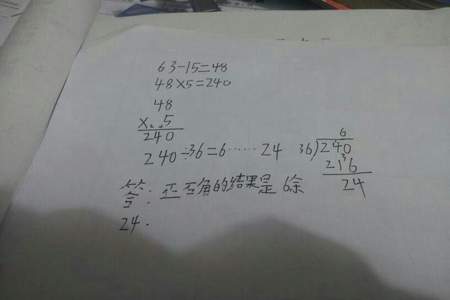 63-15=48
48×5=240
48
×  5
240
240÷36=6……24
6
36)240
216
24
答：正确的结果是6余
24.